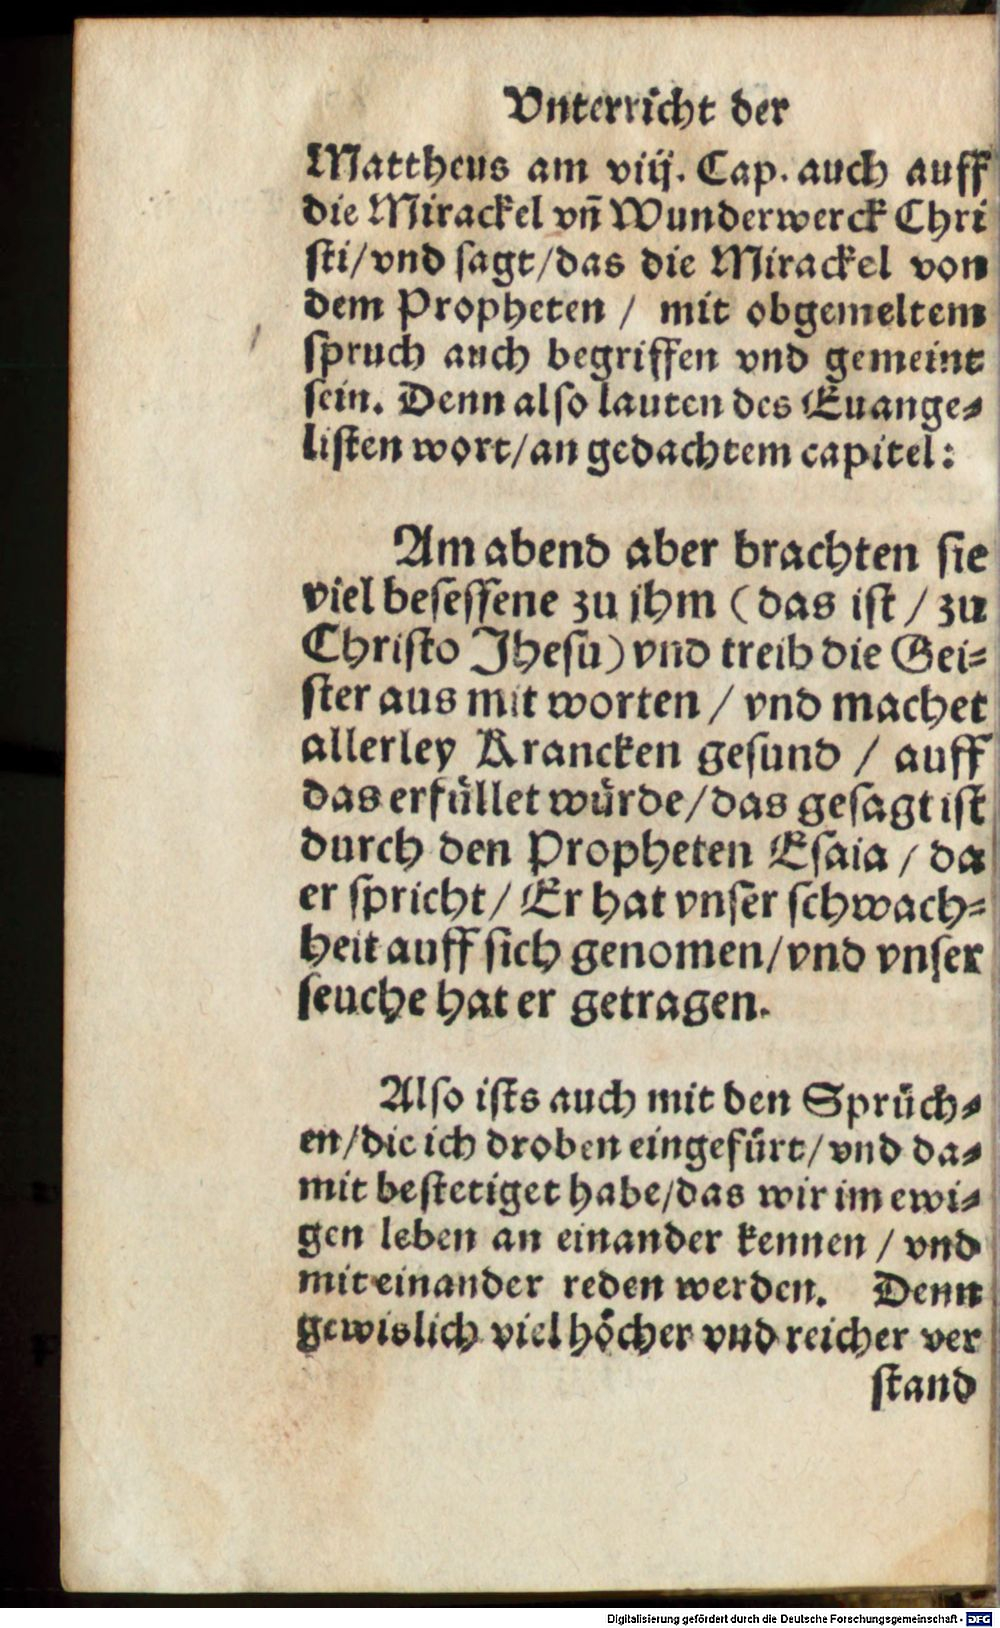 Vnterricht der
Mattheus am viij. Cap. auch auff
die Mirackel vñ Wunderwerck Chri
sti/vnd sagt/das die Mirackel von
dem Propheten / mit obgemeltem
spruch auch begriffen vnd gemeint
sein. Denn also lauten des Euange⸗
listen wort/an gedachtem capitel:
Am abend aber brachten sie
viel besessene zu jhm (das ist / zu
Christo Jhesu) vnd treib die Gei⸗
ster aus mit worten / vnd machet
allerley Krancken gesund / auff
das erfüllet würde/das gesagt ist
durch den Propheten Esaia / da
er spricht/ Er hat vnser schwach⸗
heit auff sich genomen/vnd vnser
seuche hat er getragen.
Also ists auch mit den Sprüch⸗
en/die ich droben eingefürt/vnd da⸗
mit bestetiget habe/das wir im ewi⸗
gen leben an einander kennen / vnd
mit einander reden werden. Denn
gewislich viel höcher vnd reicher ver
stand
Digitalisierung gefördert durch die Deutsche Forschungsgemeinschaft - DFG